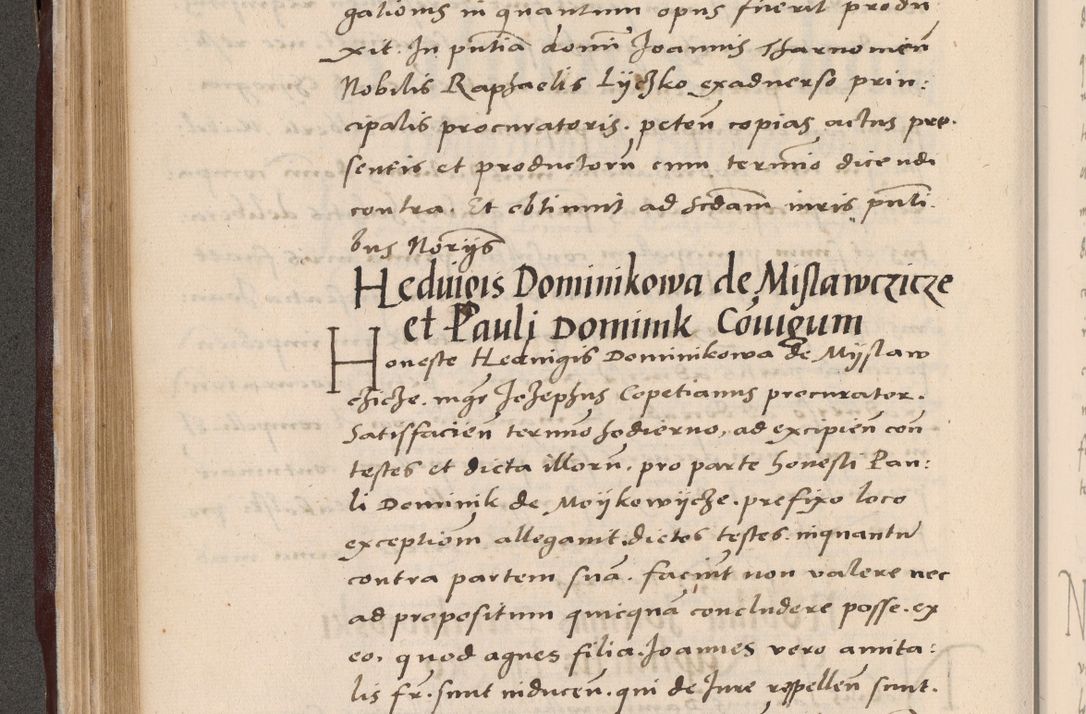 gationis in quantum opus fuerit produ
xit. In pñtia domī Joannis Tharnowień
Nobilis Raphaelis Lÿczko exaduerso prin:
cipalis procuratoris. peteñ copias actus pre.
sentis et productorū cum termīo dicendi
contra. Et obtinuit ad Scdam iuris pñti.
bus Norÿs
Heduigis Dominikowa de Mislawczicze
et Pauli Dominik Cōiugum
Honeste Heduigis Dominikowa de Mÿslaw
czicze. mgr Jozephus Copetianus procurator.
Satisfacień termīo hodierno, ad excipień con
testes et dicta illorū. pro parte honesti Pau:
li Dominik de Moÿkowÿcze. prefixo loco
exceptionū allegauit. dictos testes inquantū
contra partem suā. faciūt non valere nec
ad propositum quicquā concludere posse. ex
eo, quod agnes filia. Joannes vero amita:
lis fr̄. sunt induceñ. qui de Jure repelleñ sunt.